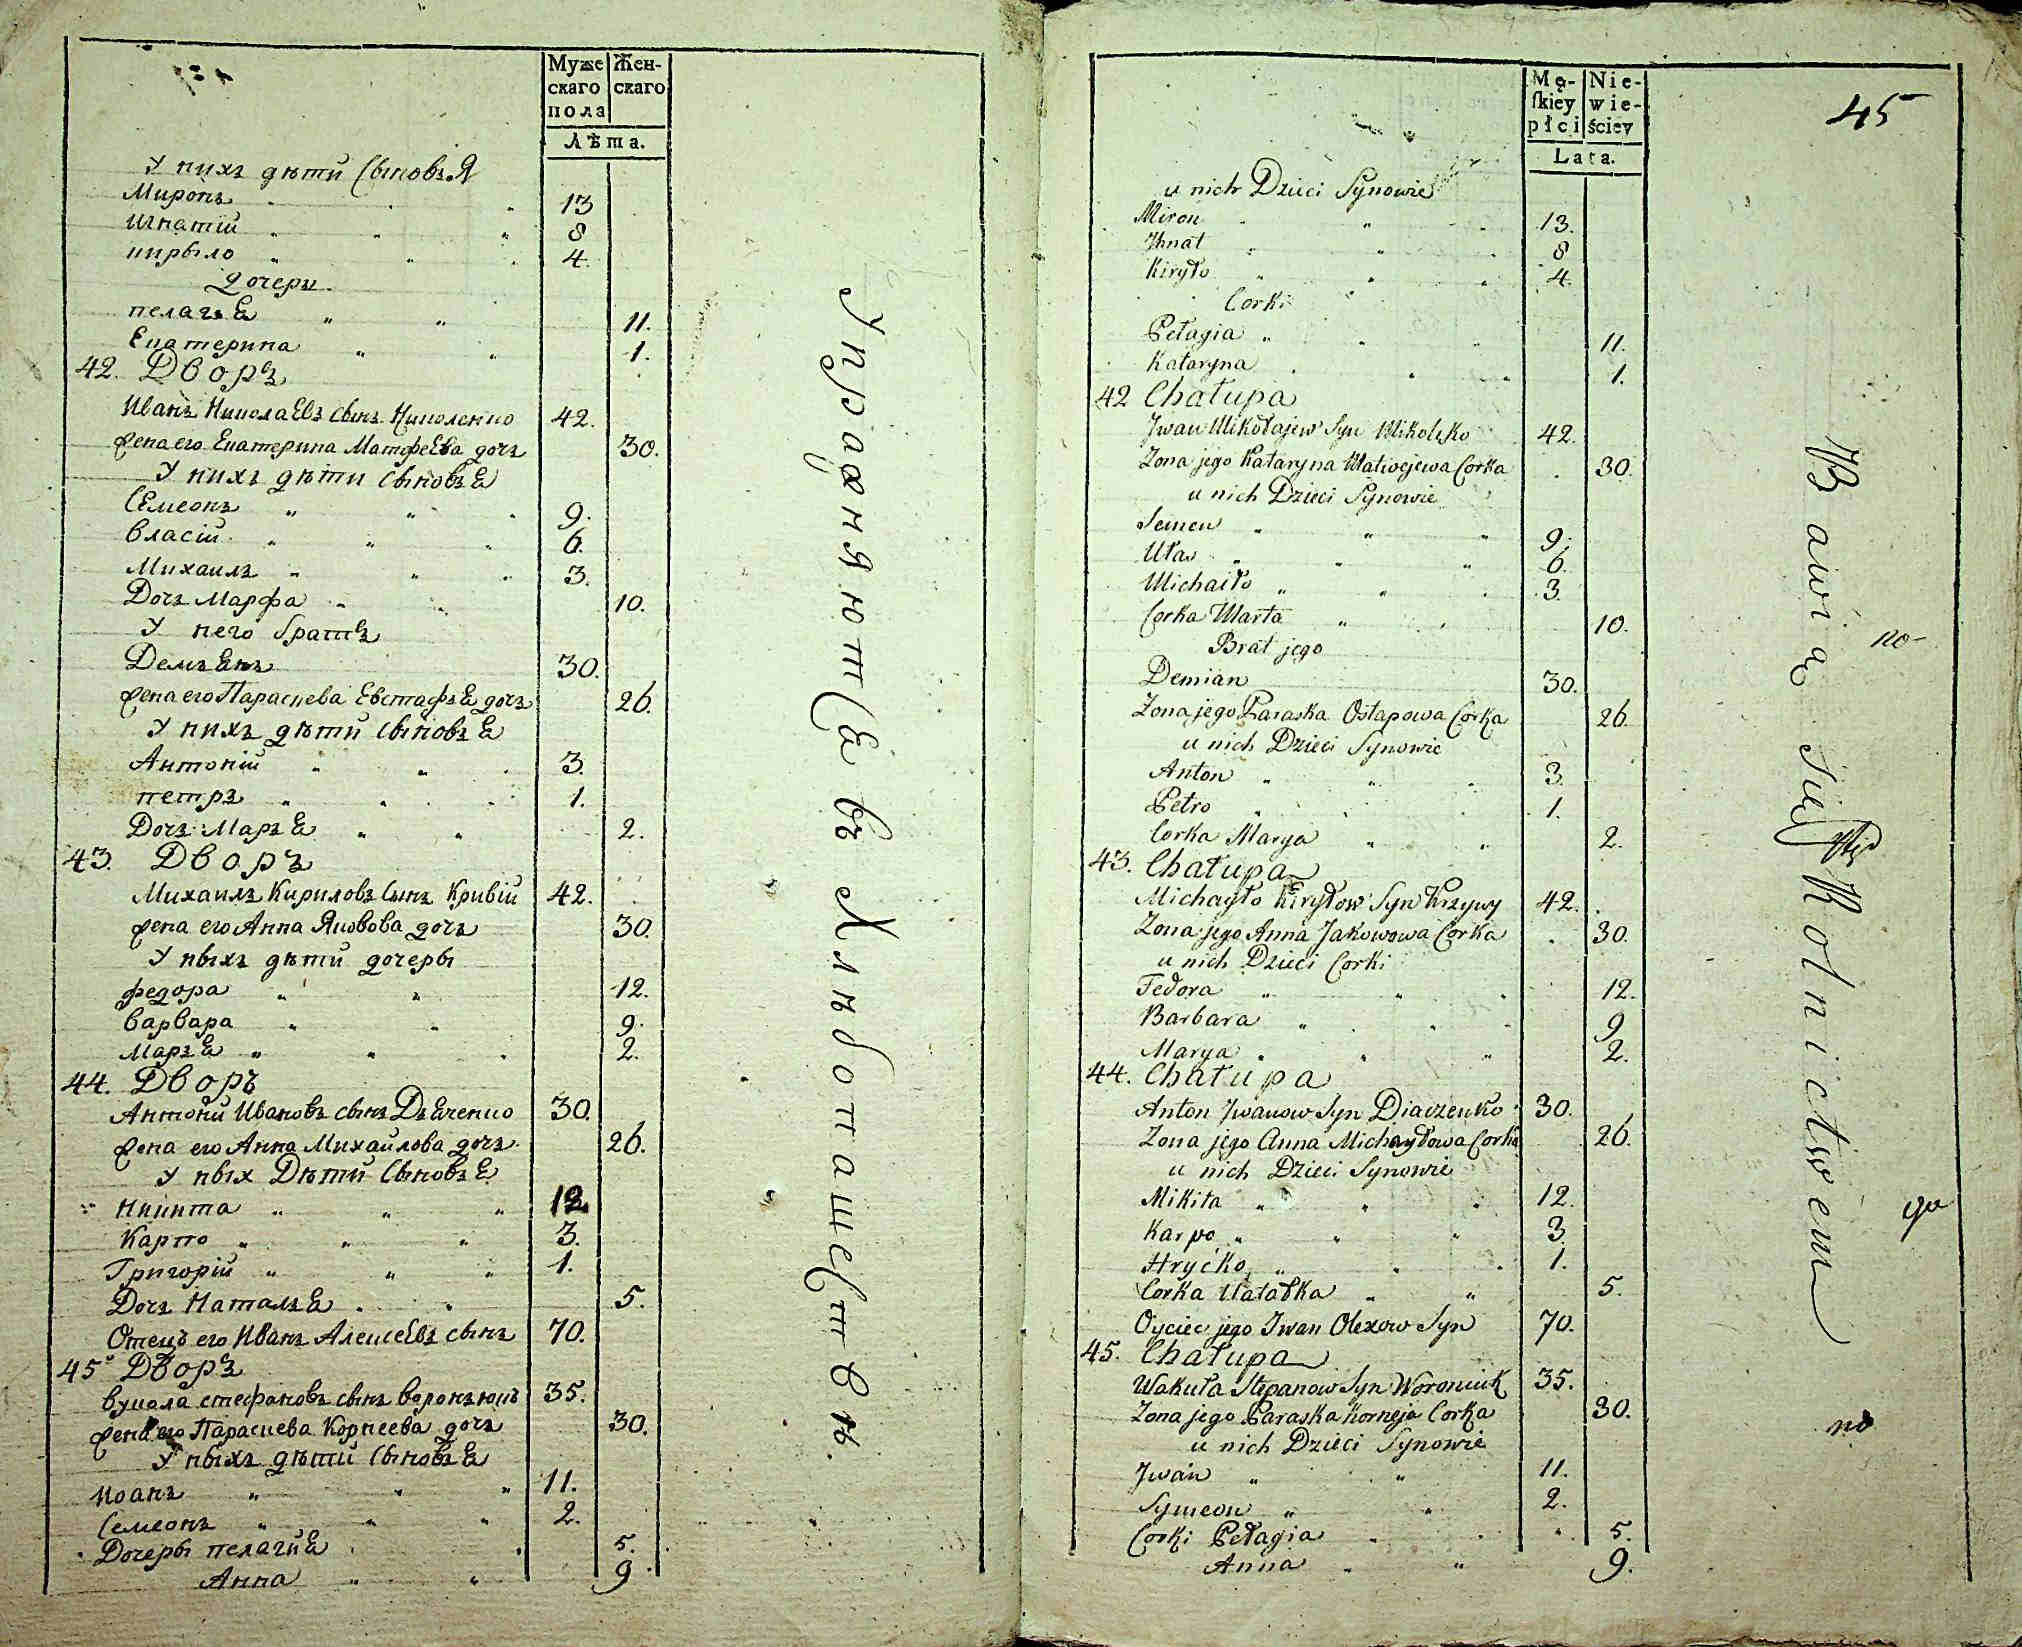 Муже
скаго
пола
Жен-
скаго
Лѣта.
У нихъ дѣти Сыновья
Миронъ 13
Игнатій 8
Кирыло 4.
Дочери
Пелагея 11.
Екатерина 1.
42. Дворъ
Иванъ Николаевъ сынъ Николенко 42.
Жена его Екатерина Матфеева дочь 30.
У нихъ дѣти сыновья
Семеонъ 9.
Власій 6.
Михаилъ 3.
Дочь Марфа 10.
У него братъ
Демьянъ 30.
Жена его Параскева Евстафья дочь 26.
У нихъ дѣти сыновья
Антоній 3.
петръ 1.
Дочь Марья 2.
43. Дворъ
Михаилъ Кириловъ Сынъ Кривій 42.
Жена его Анна Яковова дочь 30.
У ныхъ дѣти дочеры
Федора 12.
Варвара 9.
Марья 2.
44. Дворъ
Антоній Ивановъ сынъ Дьяченко 30.
Жена его Анна Михаилова дочь 26.
У ных Дѣти Сыновья
Никита 12
Карпо 3.
Григорій 1.
Дочь Наталья 5.
Отецъ его Иванъ Алексеевъ сынъ 70.
45 Дворъ
Вукола стефановъ сынъ Воронъюкъ 35.
Жена его Параскева Корнеева дочь 30.
У ныхъ дѣти Сыновья
Иоанъ 11.
Семеонъ 2.
Дочеры пелагия 5.
Анна 9
Упражняются въ Хлѣбопашествѣ.
Mę-
skiey
płci
Nie-
wie-
ściey
Lata.
45
u nich Dzieci Synowie
Miron 13.
Ihnat 8
Kiryło 4.
Corki
Pełagia 11.
Kataryna 1.
42 Chałupa
Iwan Mikołajew Syn Mikolenko 42.
Zona jego Kataryna Matwejewa Corka 30.
u nich Dzieci Synowie
Semen 9.
Ułas 6.
Michaiło 3.
Corka Marta 10.
Brat jego
Demian 30.
Zona jego Paraska Ostapowa Corka 26.
u nich Dzieci Synowie
Anton 3.
Petro 1.
Corka Marya 2.
43. Chałupa
Michayło Kiryłow Syn Krzywy 42.
Zona jego Anna Jakowowa Corka 30.
u nich Dzieci Corki
Fedora 12.
Barbara 9
Marya 2.
44. Chałupa
Anton Iwanow Syn Diaczenko 30.
Zona jego Anna Michayłowa Corka 26.
u nich Dzieci Synowie
Mikita 12.
Karpo 3.
Hryćko 1.
Corka Natałka 5.
Oyciec jego Iwan Olexow Syn 70.
45. Chałupa
Wakuła Stepanow Syn Woroniuk 35.
Zona jego Paraska Korneja Corka 30.
u nich Dzieci Synowie
Iwan 11.
Symeon 2.
Corki Pełagia 5.
Anna 9.
Bawią się Rolnictwem
по-
до